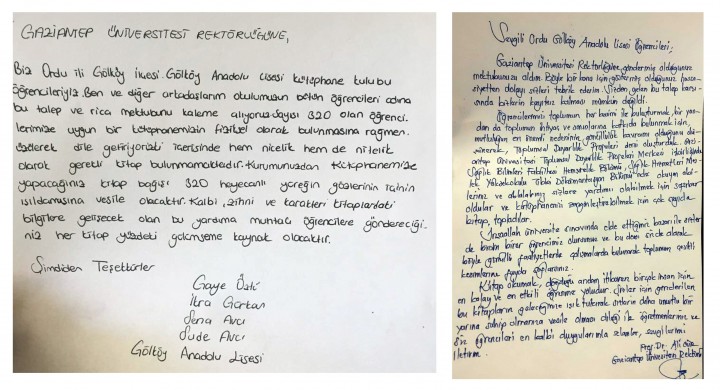 GAZİANTEP ÜNİVERSİTESİ REKTÖRLÜĞÜNE,
Biz Ordu ili Gölköy ilçesi Gölköy Anadolu Lisesi kütüphane kulübü
öğrencileriyiz. Ben ve diğer arkadaşlarım okulumuzun bütün öğrencileri adına
bu talep ve rica mektubunu kaleme alıyoruz. Sayısı 320 olan öğrenci
lerimize uygun bir kütüphanemizin fiziksel olarak bulunmasına rağmen,
üzülerek dile getiriyoruz ki içerisinde hem nicelik hem de nitelik
olarak gerekli kitap bulunmamaktadır. Kurumunuzdan kütüphanemize
yapacağınız kitap bağışı 320 heyecanlı yüreğin gözlerinin
ışıldamasına vesile olacaktır. Kalbi, zihni ve karakteri kitaplardaki
bilgilere gelişecek olan bu yardıma muhtaç öğrencilere göndereceği
niz her kitap yüzdeki gülümseme kaynak olacaktır.
Şimdiden Teşekkürler
Gaye
Sena Avcı
Sude Avcı
Gölköy Anadolu Lisesi
Sevgili Ordu Gölköy Anadolu Lisesi Öğrencileri;
Gaziantep Üniversitesi Rektörlüğüne göndermiş olduğunuz
mektubunuzu aldım. Böyle bir konu için göstermiş olduğunuz hassa
siyetten dolayı sizleri tebrik ederim. Sizden gelen bu talep karşı
sında bizlerin kayıtsız kalması mümkün değildi.
Öğrencilerimizi toplumun her kesimi ile buluşturmak, bir yan
dan da toplumun ihtiyaç ve sorunlarına katkıda bulunmak için,
mutluluğun en önemli nedeninin, gönüllülük kavramı olduğunu dü
şünerek, Toplumsal Duyarlılık Projeleri dersi oluşturduk. Gazi
antep Üniversitesi Toplumsal Duyarlılık Projeleri Merkezi
Sağlık Bilimleri Fakültesi Hemşirelik Bölümü, Sağlık Hizmetleri Mes
lek Yüksekokulu Tıbbi Dökümantasyon Bölümü'nde okuyan öğren
cilerimiz sizlere yardımcı olabilmek için seferber
oldular ve kütüphanenizi zenginleştirebilmek için çok sayıda
kitap topladılar.
İnşaallah üniversite sınavında elde ettiğiniz başarı ile sizler
de bizim birer öğrencimiz olursunuz ve bu dersi siz de alarak
böyle gönüllü faaliyetlerde çalışmalarda bulunarak toplumun çeşitli
kesimlerine fayda sağlarsınız.
Kitap okumak, doğduğu andan itibaren birçok insan için
en kolay ve en etkili öğrenme yoludur. Sizler için gönderilen
bu kitapların geleceğinize ışık tutarak sizlerin daha umutlu bir
yarına sahip olmanıza vesile olması dileği ile öğretmenlerinize ve
siz öğrencileri en kalbi duygularımla selamlar, sevgilerimi
iletirim.
Prof. Dr. Ali Gür
Gaziantep Üniversitesi Rektörü